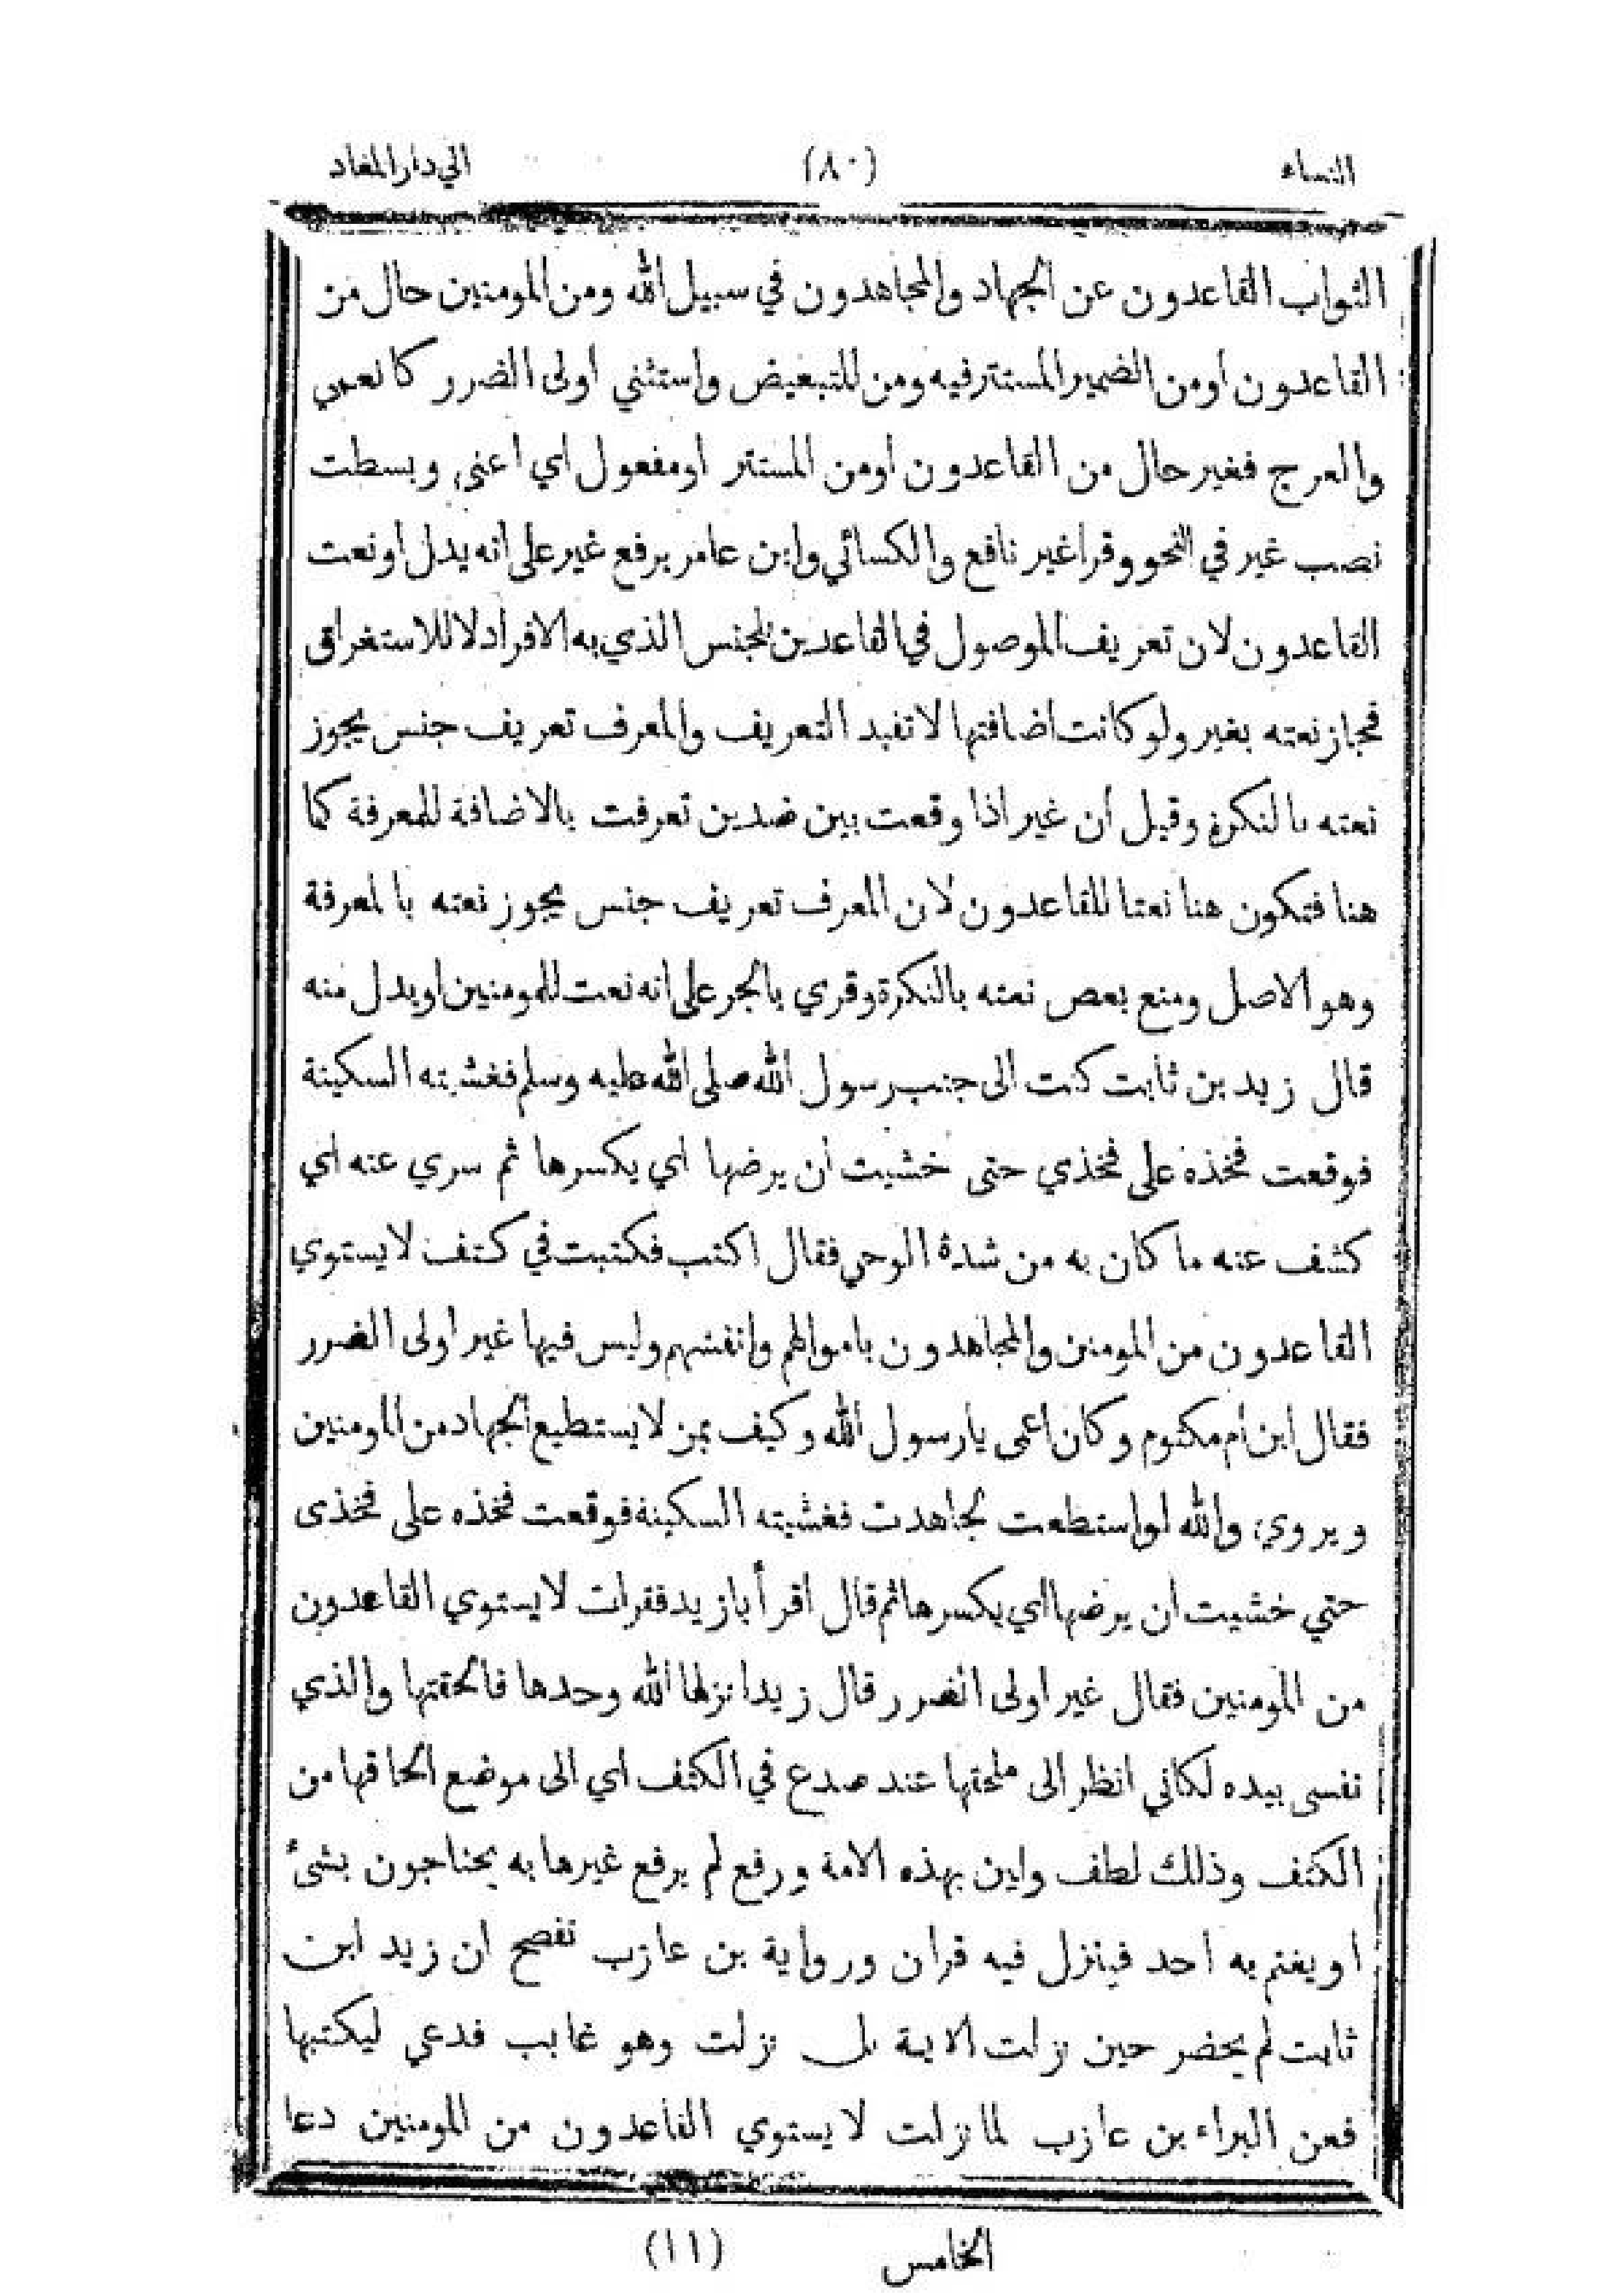 النساء (٨٠) الي دار المعاد
الثواب القاعدون عن الجهاد والمجاهدون في سبيل الله ومن المومنين حال من
القاعدون أو من الضمير المستتر فيه ومن للتبعيض واستثني أولى الضرر كالعمي
والعرج فغير حال من القاعدون أو من المستتر أو مفعول اي اعني وبسطت
نصب غير في النحو وقرا غير نافع والكسائي وابن عامر برفع غير على انه يدل او نعت
القاعدون لان تعريف الموصول في القاعدين للجنس الذي به الافراد لا للاستغراق
فجاز نعته بغير ولو كانت اضافتها لا تفيد التعريف والمعرف تعريف جنس يجوز
نعته بالنكرة وقيل أن غير اذا وقعت بين ضدين تعرفت بالاضافة للمعرفة كما
هنا فتكون هنا نعتا للقاعدون لان المعرف تعريف جنس يجوز نعته بالمعرفة
وهو الاصل ومنع بعض نعته بالنكرة وقري بالجر على انه نعت للمومنين او بدل منه
قال زيد بن ثابت كنت الى جنب رسول الله صلى الله عليه وسلم فغشيته السكينة
فوقعت فخذه على فخذي حتى خشيت أن يرضها اي يكسرها ثم سري عنه اي
كشف عنه ما كان به من شدة الوحي فقال اكتب فكتبت في كتف لا يستوي
القاعدون من المومنين والمجاهدون باموالهم وانفسهم وليس فيها غير اولى الضرر
فقال ابن أم مكتوم وكان اعمى يا رسول الله وكيف بمن لا يستطيع الجهاد من المومنين
ويروي والله لو استطعت لجاهدت فغشيته السكينة فوقعت فخذه على فخذى
حتي خشيت ان يرضها اي يكسرها ثم قال اقر أبا زيد فقرات لا يستوي القاعدون
من المومنين فقال غير اولى الضرر قال زيد انزلها الله وحدها فالحقتها والذي
نفسى بيده لكاني انظر الى ملحقها عند صدع في الكتف اي الى موضع الحاقها من
الكتف وذلك لطف ولين بهذه الامة ورفع لم يرفع غيرها به يحتاجون بشئ
او يغتم به احد فينزل فيه قران ورواية بن عازب تفصح ان زيد ابن
ثابت لم يحضر حين نزلت الاية بل نزلت وهو غايب فدعي ليكتبها
فعن البراء بن عازب لما نزلت لا يستوي القاعدون من المومنين دعا
الخامس (١١)